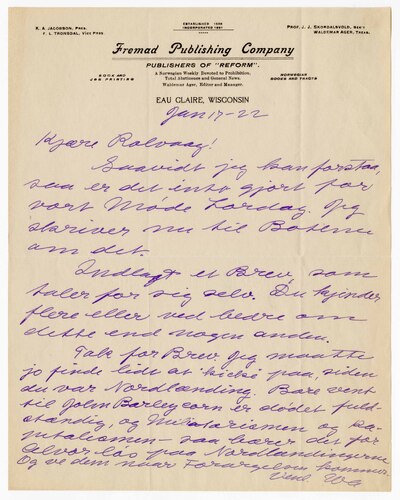 K. A. Jacobson, Pres.
F. L. Tronsdal, Vice Pres.
ESTABLISHED 1886
INCORPORATED 1891
Prof. J. J. Skordalsvold, Sec'y
Waldemar Ager, Treas.
Fremad Publishing Company
PUBLISHERS OF "REFORM".
BOOK AND
JOB PRINTING
A Norwegian Weekly Devoted to Prohibition,
Total Abstinence and General News.
Waldemar Ager, Editor and Manager.
NORWEGIAN
BOOKS AND TRACTS
EAU CLAIRE, WISCONSIN
Jan 17-22
Kjære Rolvaag!
Saavidt jeg kan forstaa,
saa er det intet gjort for
vort Møde Lørdag. Jeg
skriver nu til Bothne
om det.
Indlagt et Brev som
taler for sig selv. Du kjender
flere eller ved bedre om
dette end nogen anden.
Tak for Brev. Jeg maatte
jo finde lidt at "kicke" paa, siden
du var Nordlænding. Bare vent
til John Barleycorn er dødet fuld-
stændig, og Militarismen og Ka-
pitalismen – saa bærer det for
Alvor løs paa Nordlændingerne
Og ve dem naar Forargelsen kommer.
Venl WA